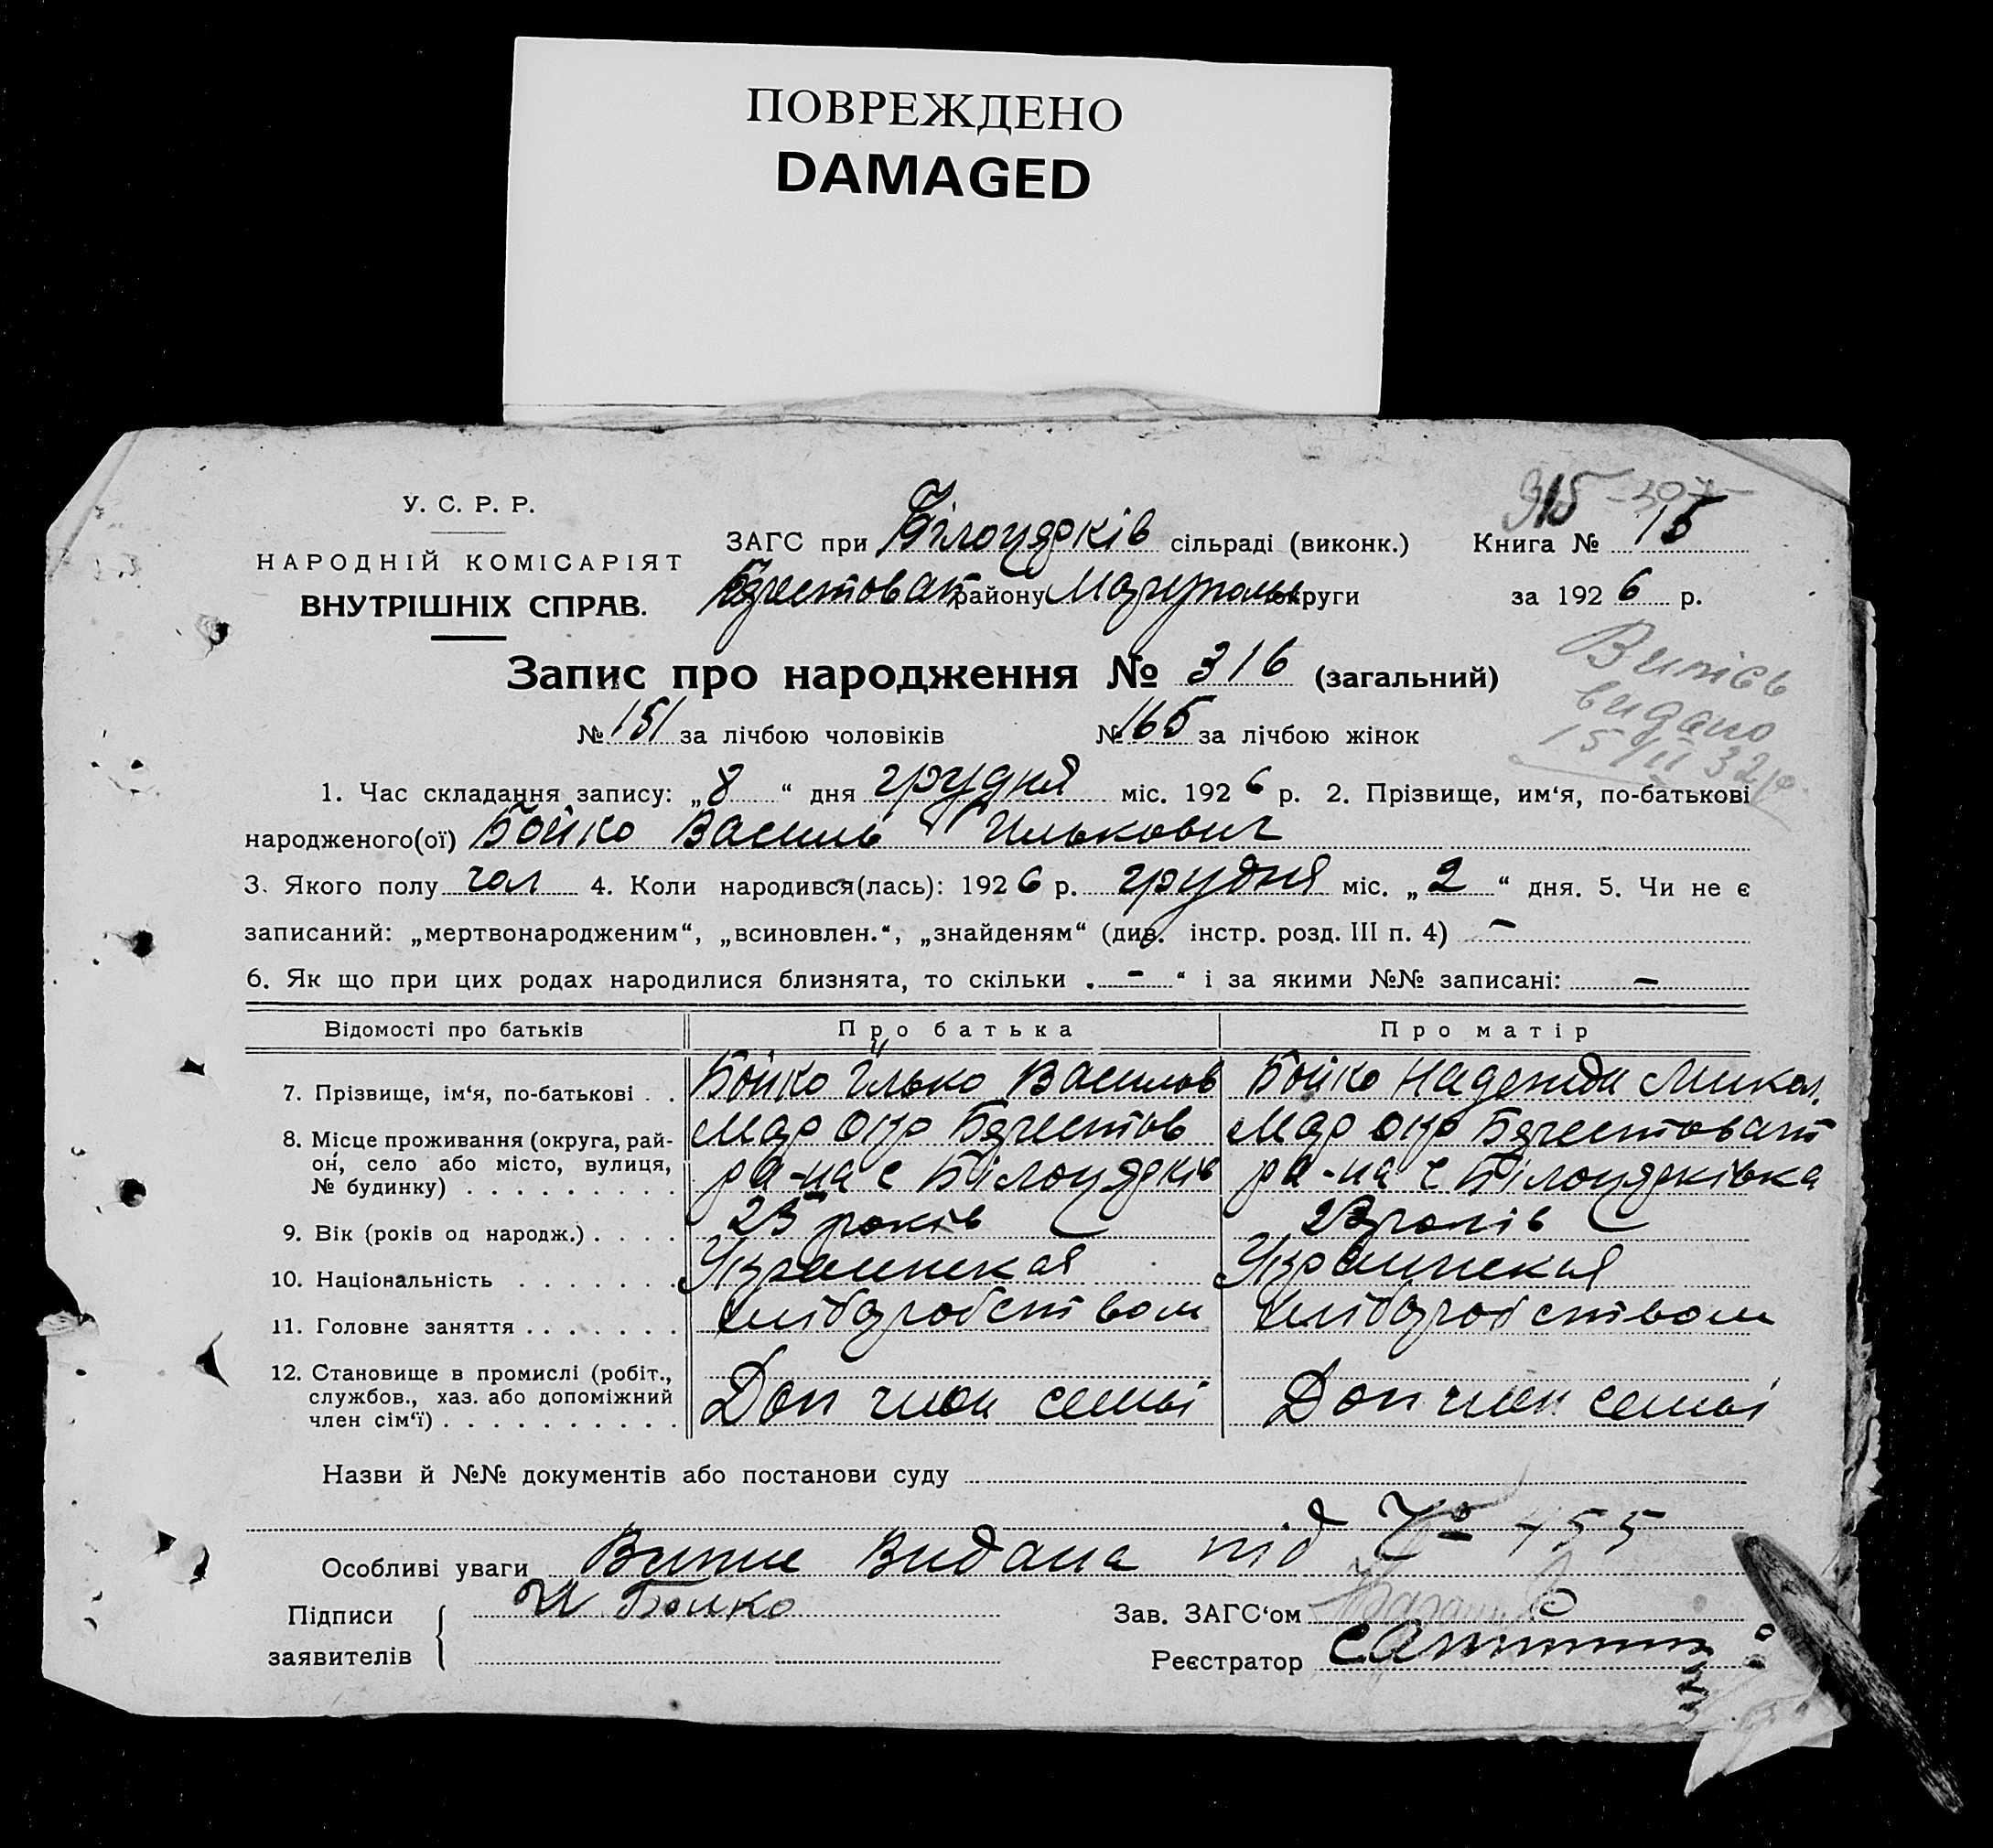 ПОВРЕЖДЕНО
DAMAGED
У. С. Р. Р.
НАРОДНІЙ КОМІСАРІЯТ
ВНУТРІШНІХ СПРАВ.
315
ЗАГС при Білоцерків сільраді (виконк.) Книга № 15
району Маріуполь округи за 1926 р.
Запис про народження № 316 (загальний)
Випісь
видано
15/II 32 р.
№ 151 за лічбою чоловіків № 165 за лічбою жінок
1. Час складання запису: „8“ дня грудня міс. 1926 р. 2. Прізвище, им‘я, по-батькові
народженого(ої) Бойко Василь Илькович
3. Якого полу чол 4. Коли народився(лась): 1926 р. грудня міс. „2“ дня. 5. Чи не є
записаний: „мертвонародженим“, „всиновлен.“, „знайденям“ (див. інстр. розд. III п. 4) –
6. Як що при цих родах народилися близнята, то скільки „–“ і за якими №№ записані: –
Відомості про батьків Про батька Про матір
7. Прізвище, ім‘я, по-батькові . . Бойко Илько Васильов Бойко Надежда Микол.
8. Місце проживання (округа, рай- Мар окр Мар окр
он, село або місто, вулиця, ра-на с Білоцерків ра-на с Білоцерківка
№ будинку) . . . . . . . . .
9. Вік (років од народж.) . . . . 25 років 23 років
10. Національність . . . . . . . Украинская Украинская
11. Головне заняття . . . . . . . хліборобством хліборобством
12. Становище в промислі (робіт.,
службов., хаз. або допоміжний Доп член семьі Доп член семьі
член сім‘ї) . . . . . . . . . .
Назви й №№ документів або постанови суду
Особливі уваги Випис Видана під № 455
Підписи И Бойко Зав. ЗАГС‘ом
заявителів Реєстратор